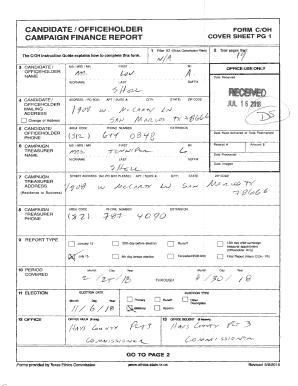 CANDIDATE / OFFICEHOLDER FORM C/OH
CAMPAIGN FINANCE REPORT COVER SHEET PG 1
The C/OH Instruction Guide explains how to complete this form.
1 Filer ID (Ethics Commission Filers) N/A
2 Total pages filed:
3 CANDIDATE / OFFICEHOLDER NAME
MS / MRS / MR FIRST MI
Mr. Lon A
NICKNAME LAST SUFFIX
Shell
OFFICE USE ONLY
Date Received
RECEIVED
JUL 16 2018
4 CANDIDATE / OFFICEHOLDER MAILING ADDRESS
Change of Address
ADDRESS / PO BOX; APT / SUITE #; CITY; STATE; ZIP CODE
1908 W. McCarty Ln
San Marcos TX 78666
5 CANDIDATE / OFFICEHOLDER PHONE
AREA CODE PHONE NUMBER EXTENSION
(512)
Date Hand-delivered or Date Postmarked
6 CAMPAIGN TREASURER NAME
MS / MRS / MR FIRST MI
Mrs.
NICKNAME LAST SUFFIX
Shell
Receipt # Amount $
Date Processed
Date Imaged
7 CAMPAIGN TREASURER ADDRESS
(Residence or Business)
STREET ADDRESS (NO PO BOX PLEASE); APT / SUITE #; CITY; STATE; ZIP CODE
1908 W McCarty Ln San Marcos TX
78666
8 CAMPAIGN TREASURER PHONE
AREA CODE PHONE NUMBER EXTENSION
787 4090
9 REPORT TYPE
January 15 30th day before election Runoff 15th day after campaign treasurer appointment (Officeholder Only)
July 15 8th day before election Exceeded $500 limit Final Report (Attach C/OH - FR)
10 PERIOD COVERED
Month Day Year Month Day Year
THROUGH 6/30/18
11 ELECTION
ELECTION DATE ELECTION TYPE
Month Day Year
11/6/18
Primary Runoff Other Description
General Special
12 OFFICE
OFFICE HELD (if any)
Hays County Pct 3
Commissioner
13 OFFICE SOUGHT (if known)
Hays County Pct 3
Commissioner
GO TO PAGE 2
Forms provided by Texas Ethics Commission www.ethics.state.tx.us